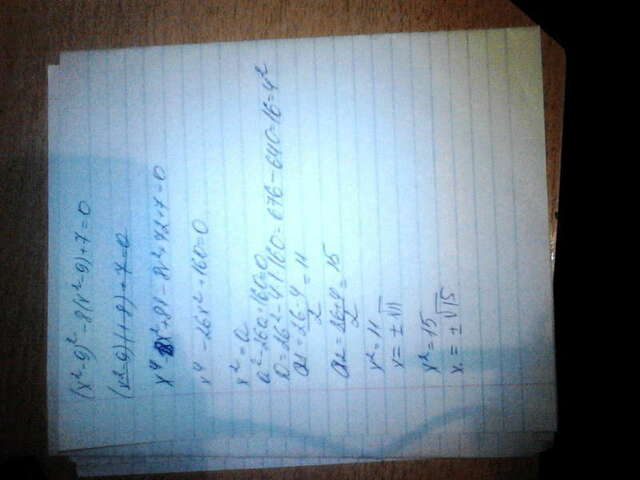 (x²-9)²-8(x²-9)+7=0
(x²-9)(1-8)+7=0
x⁴-18x²+81-8x²+72+7=0
x⁴-26x²+160=0
x²=a
a²-26a+160=0
D=26²-4*160=676-640=16=4²
a1=26-4/2=11
a2=26+4/2=15
x²=11
x=±√11
x²=15
x=±√15